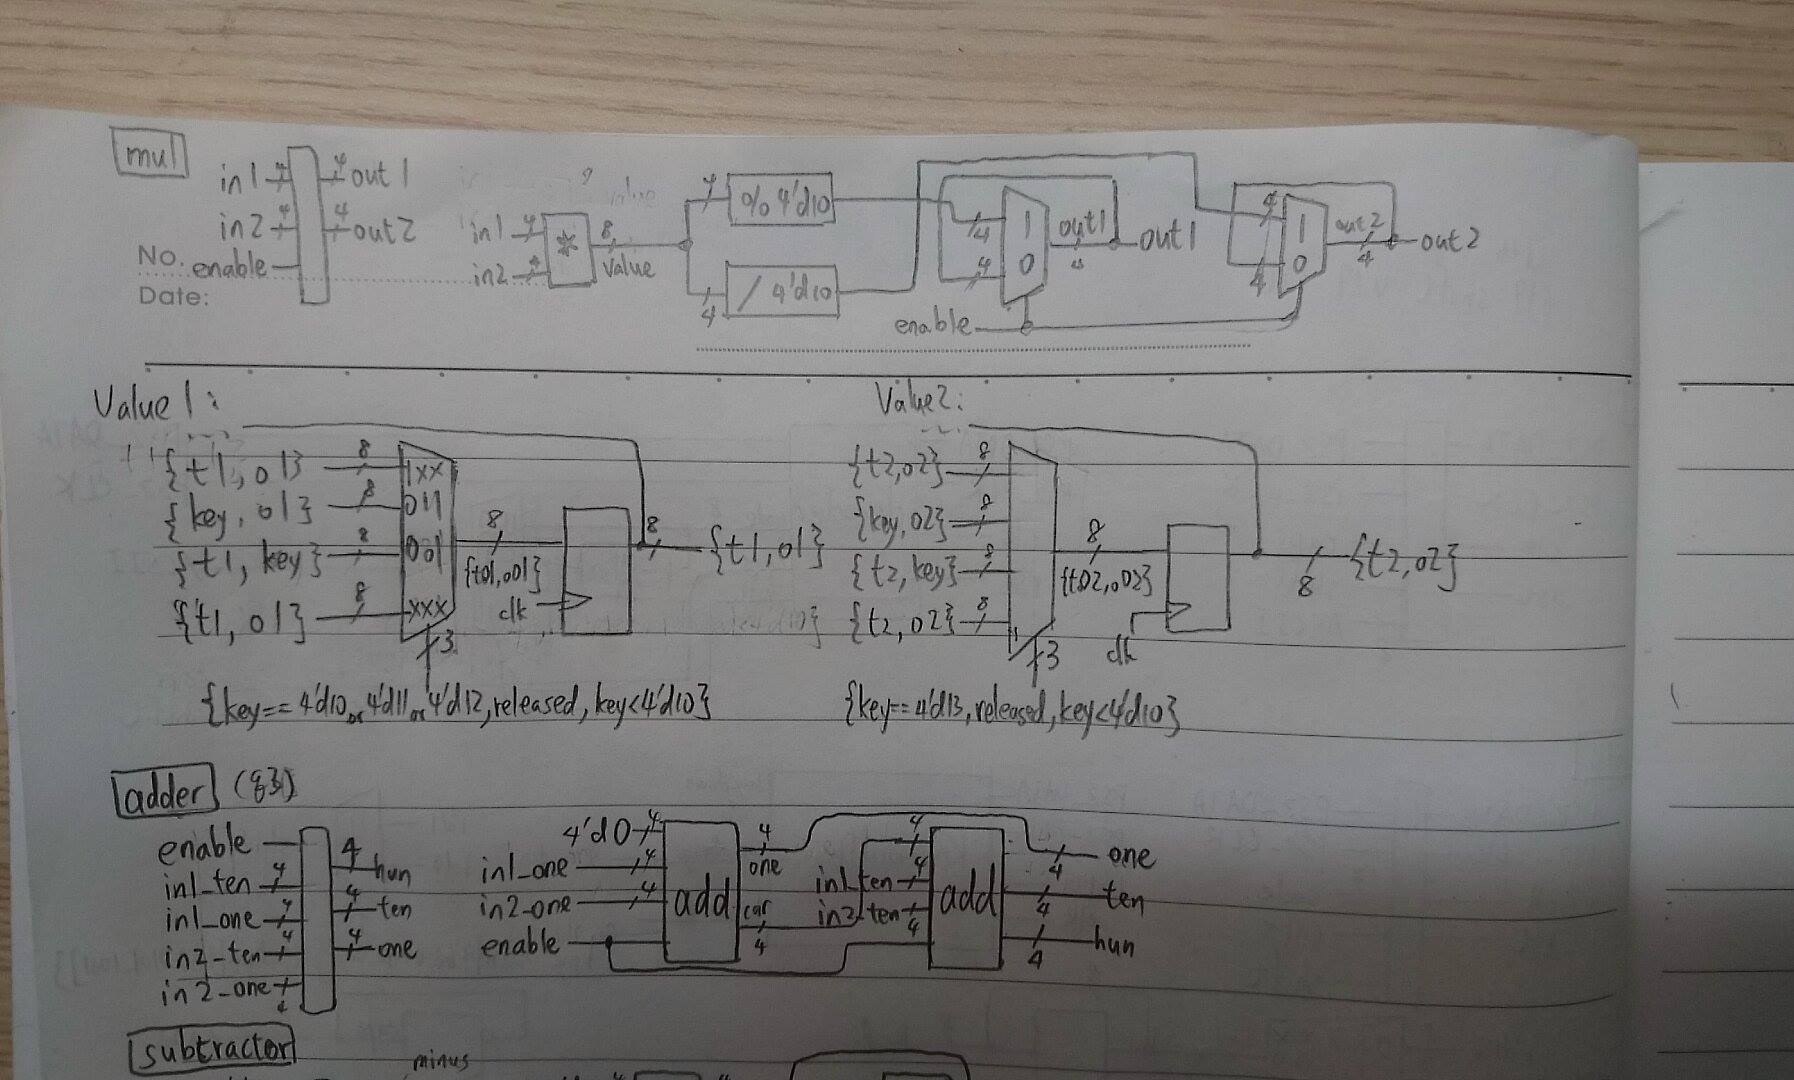 mul
in1 4 4 out1
in2 4 4 out2
enable
No.
Date:
in1 4 * 8 value
in2 4
4 % 4'd10
4 / 4'd10
4 1 out1 4 out1
4 0
enable
4 1 out2 4 out2
4 0
Value1:
{t1,o1} 8 1xx
{key,o1} 8 011
{t1,key} 8 001 8 {t01,o01} 8 {t1,o1}
{t1,o1} 8 xxx clk
3
{key==4'd10 or 4'd11 or 4'd12, released, key<4'd10}
Value2:
{t2,o2} 8
{key,o2} 8
{t2,key} 8 8 {t02,o02} 8 {t2,o2}
{t2,o2} 8 clk
3
{key==4'd13, released, key<4'd10}
adder
enable 4 hun
in1_ten 4 4 ten
in1_one 4 4 one
in2_ten 4
in2_one 4
4'd0 4
in1_one 4 4 one
in2_one 4 add car 4
enable
4
in1_ten 4 4 one
in2_ten 4 add 4 ten
4 hun
subtractor
minus